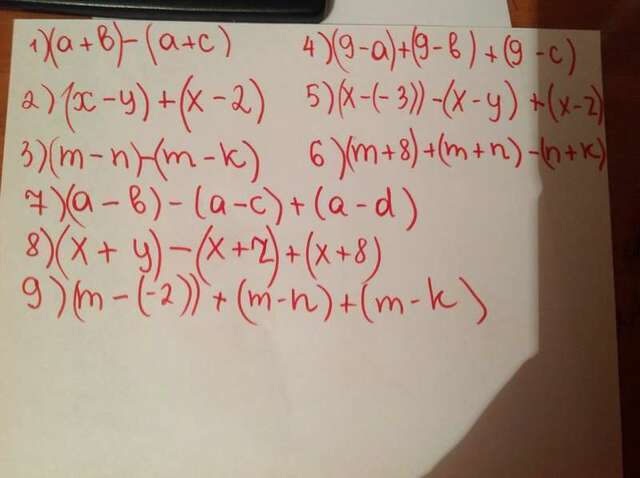 1)(a+b)-(a+c) 4)(9-a)+(9-b)+(9-c)
2)(x-y)+(x-2) 5)(x-(-3))-(x-y)+(x-z)
3)(m-n)-(m-k) 6)(m+8)+(m+n)-(n+k)
7)(a-b)-(a-c)+(a-d)
8)(x+y)-(x+z)+(x+8)
9)(m-(-2))+(m-n)+(m-k)